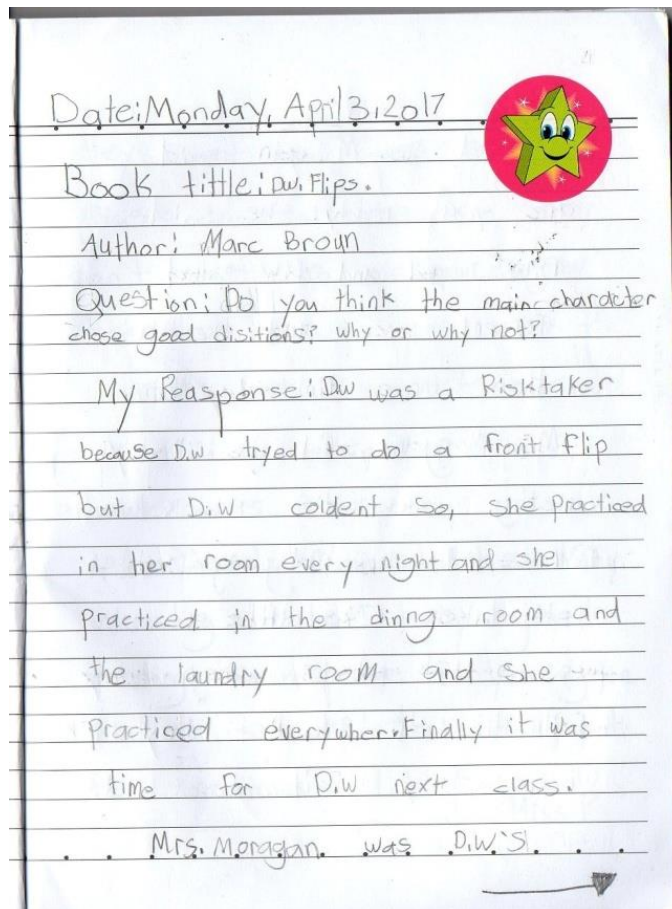 Date: Monday, April 3, 2017
Book tittle: D.W. Flips.
Author: Marc Broun
Question: Do you think the main character
chose good disitions? why or why not?
My Reasponse: DW was a Risktaker
because D.W tryed to do a front flip
but D.W coldent so, she practiced
in her room every night and she
practiced in the dinng room and
the laundry room and she
practiced everywher. Finally it was
time for D.W next class.
Mrs. Moragan was D.W'S